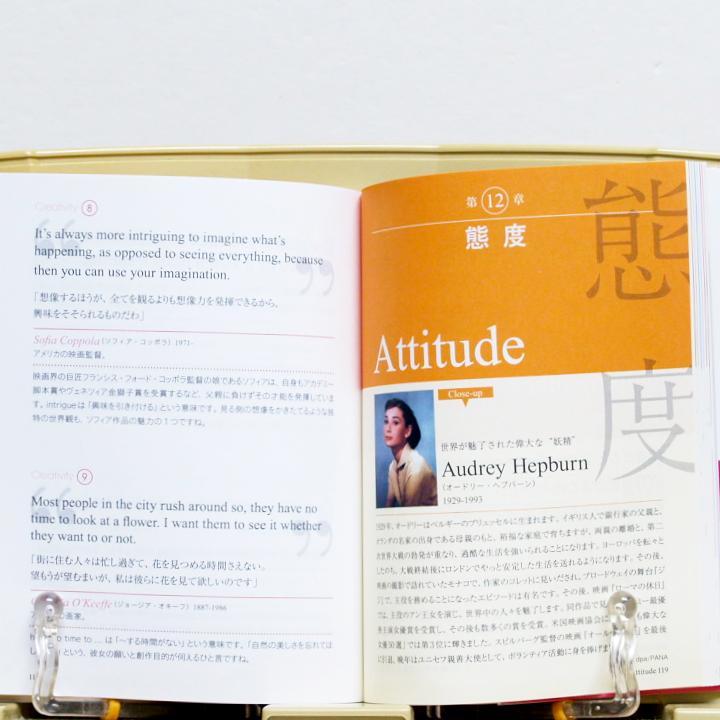 Creativity 8
It's always more intriguing to imagine what's
happening, as opposed to seeing everything, because
then you can use your imagination.
「想像するほうが、全てを観るよりも想像力を発揮できるから、
興味をそそられるものだわ」
Sofia Coppola（ソフィア・コッポラ）1971-
アメリカの映画監督。
映画界の巨匠フランシス・フォード・コッポラ監督の娘であるソフィアは、自身もアカデミー
脚本賞やヴェネツィア金獅子賞を受賞するなど、父親に負けずその才能を発揮していま
す。intrigueは「興味を引き付ける」という意味です。見る側の想像をかきたてるような独
特の世界観も、ソフィア作品の魅力の1つですね。
Creativity 9
Most people in the city rush around so, they have no
time to look at a flower. I want them to see it whether
they want to or not.
「街に住む人々は忙し過ぎて、花を見つめる時間さえない。
望もうが望むまいが、私は彼らに花を見て欲しいのです」
O'Keeffe（ジョージア・オキーフ）1887-1986
の画家。
time to ... は「~する時間がない」という意味です。「自然の美しさを忘れては
という、彼女の願いと創作目的が伺えるひと言ですね。
第 12 章
態度
態度
Attitude
Close-up
世界が魅了された偉大な“妖精”
Audrey Hepburn
（オードリー・ヘプバーン）
1929-1993
1929年、オードリーはベルギーのブリュッセルに生まれます。イギリス人で銀行家の父親と、
オランダの名家の出身である母親のもと、裕福な家庭で育ちますが、両親の離婚と、第二
次世界大戦の勃発が重なり、過酷な生活を強いられることになります。ヨーロッパを転々と
したのち、大戦終結後にロンドンでやっと安定した生活を送れるようになります。その後、
映画の撮影で訪れていたモナコで、作家のコレットに見いだされ、ブロードウェイの舞台『ジ
』で、主役を務めることになったエピソードは有名です。その後、映画『ローマの休日』
で、主役のアン王女を演じ、世界中の人々を魅了します。同作品で見
主演女優賞を受賞し、その後も数多くの賞を受賞。米国映画協会
女優50選」では第3位に輝きました。スピルバーグ監督の映画『オール
に、晩年はユニセフ親善大使として、ボランティア活動に身を捧げま
dpa/PANA
Attitude 119